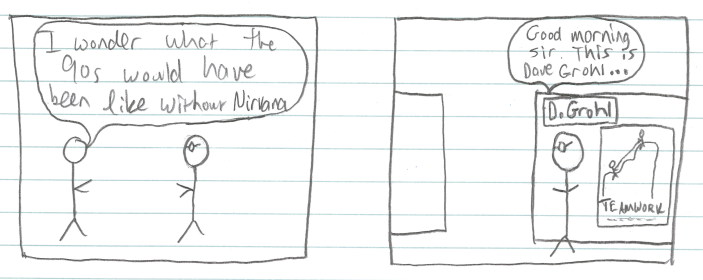 I wonder what the
90s would have
been like without Nirvana
Good morning
sir. This is
Dave Grohl...
D. Grohl
TEAMWORK